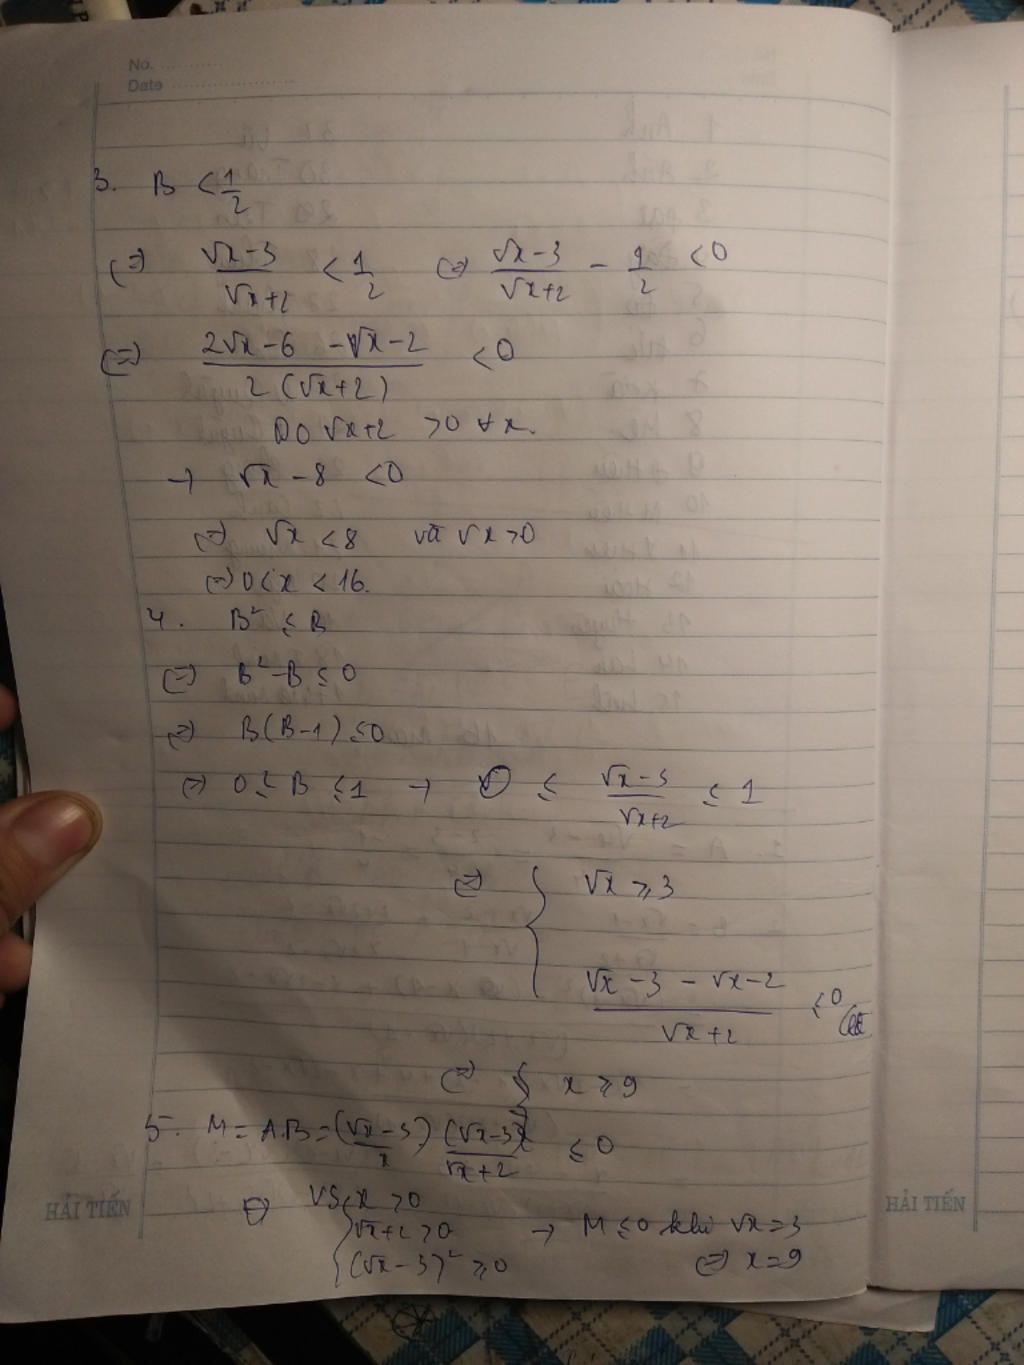 No. ..........
Date ......................
3. B < 1/2
(=) (√x-3)/(√x+2) < 1/2 (=) (√x-3)/(√x+2) - 1/2 < 0
(=) (2√x-6 -√x-2)/(2(√x+2)) < 0
DO √x+2 >0 ∀x.
→ √x - 8 < 0
(=) √x < 8 và √x > 0
(=) 0 < x < 16.
4. B² ≤ B
(=) B²-B ≤ 0
(=) B(B-1) ≤ 0
(=) 0 ≤ B ≤ 1 → 0 ≤ (√x-3)/(√x+2) ≤ 1
(=) { √x ≥ 3
(√x-3-√x-2)/(√x+2) ≤ 0
(=) { x ≥ 9
5. M = A.B = (√x-3)/x (√x-3)/(√x+2) ≤ 0
x > 0
√x+2 > 0 → M ≤ 0 khi √x = 3
(√x-3)² ≥ 0 (=) x = 9
HẢI TIẾN
HẢI TIẾN